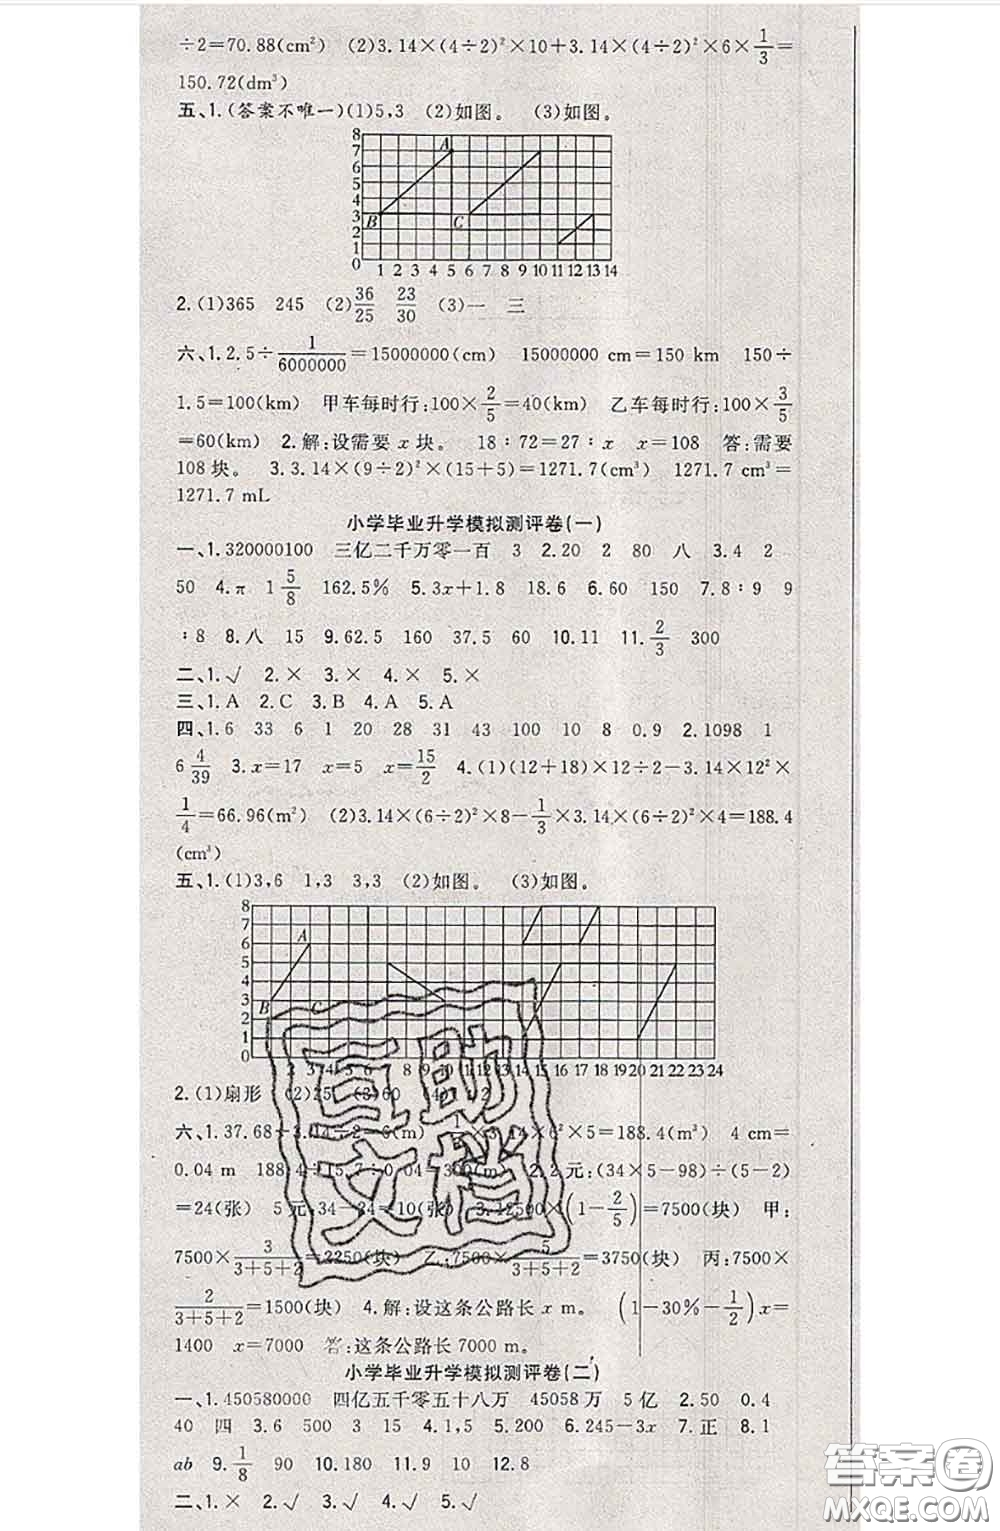 ÷2=70.88(cm²)　(2)3.14×(4÷2)²×10+3.14×(4÷2)²×6×1/3=
150.72(dm³)
五、1.(答案不唯一)(1)5,3　(2)如图。　(3)如图。
8
7
6
5
4
3
2
1
0
A
B
C
1 2 3 4 5 6 7 8 9 10 11 12 13 14
2.(1)365　245　(2)36/25　23/30　(3)一　三
六、1.2.5÷1/6000000=15000000(cm)　15000000 cm=150 km　150÷
1.5=100(km)　甲车每时行:100×2/5=40(km)　乙车每时行:100×3/5
=60(km)　2.解:设需要 x 块。　18∶72=27∶x　x=108　答:需要
108块。　3.3.14×(9÷2)²×(15+5)=1271.7(cm³)　1271.7 cm³=
1271.7 mL
小学毕业升学模拟测评卷(一)
一、1.320000100　三亿二千万零一百　3　2.20　2　80　八　3.4　2
50　4.π　1 5/8　162.5%　5.3x+1.8　18.6　6.60　150　7.8∶9　9
∶8　8.八　15　9.62.5　160　37.5　60　10.11　11.2/3　300
二、1.√　2.×　3.×　4.×　5.×
三、1.A　2.C　3.B　4.A　5.A
四、1.6　33　6　1　20　28　31　43　100　10　8　0.9　2.1098　1
6 4/39　3.x=17　x=5　x=15/2　4.(1)(12+18)×12÷2-3.14×12²×
1/4=66.96(m²)　(2)3.14×(6÷2)²×8-1/3×3.14×(6÷2)²×4=188.4
(cm³)
五、1.(1)3,6　1,3　3,3　(2)如图。　(3)如图。
8
7
6
5
4
3
2
1
0
A
B
C
2 3 4 5 6 7 8 9 10 11 12 13 14 15 16 17 18 19 20 21 22 23 24
2.(1)扇形　(2)25　(3)60　40　2
六、1.37.68÷3.14÷2=6(m)　×3.14×6²×5=188.4(m³)　4 cm=
0.04 m　188.4÷15.7÷0.04=300(m)　2.2元:(34×5-98)÷(5-2)
=24(张)　5元:34-24=10(张)　3.12500×(1-2/5)=7500(块)　甲:
7500×3/3+5+2=2250(块)　乙:7500×5/3+5+2=3750(块)　丙:7500×
2/3+5+2=1500(块)　4.解:设这条公路长 x m。　(1-30%-1/2)x=
1400　x=7000　答:这条公路长7000 m。
小学毕业升学模拟测评卷(二)
一、1.450580000　四亿五千零五十八万　45058万　5亿　2.50　0.4
40　四　3.6　500　3　15　4.1,5　5.200　6.245-3x　7.正　8.1
ab　9.1/8　90　10.180　11.9　10　12.8
二、1.×　2.√　3.√　4.√　5.√
互助
文档
答案圈
MXQE.COM